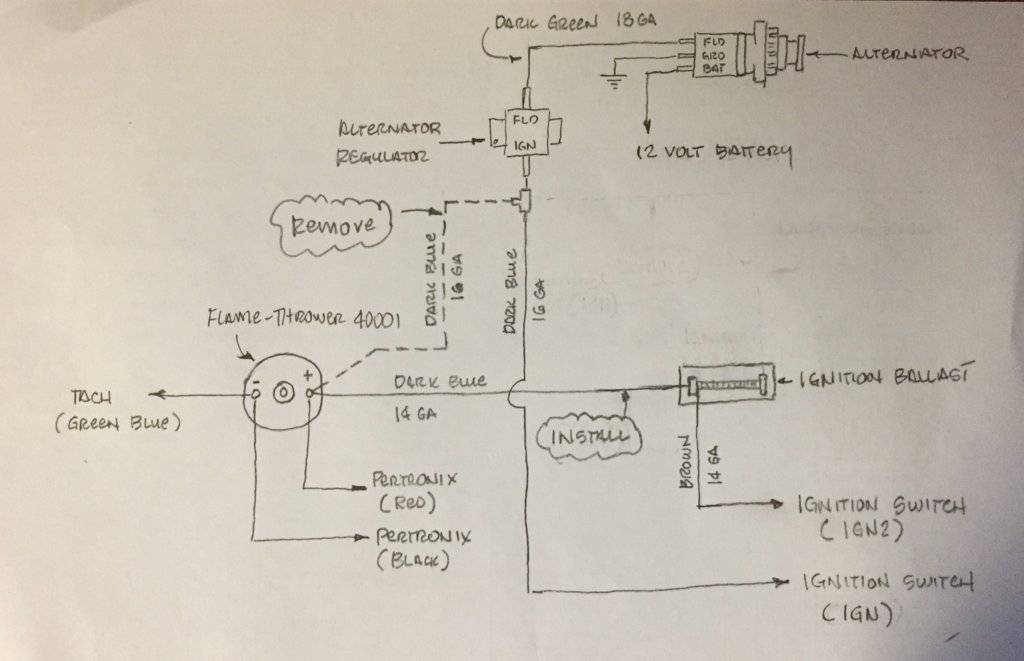 DARK GREEN 18 GA
FLD
GRD
BAT
ALTERNATOR
FLD
IGN
ALTERNATOR
REGULATOR
12 VOLT BATTERY
REMOVE
DARK BLUE
16 GA
DARK BLUE
16 GA
FLAME-THROWER 40001
- +
DARK BLUE
14 GA
IGNITION BALLAST
TACH
(GREEN BLUE)
INSTALL
BROWN
14 GA
PERTRONIX
(RED)
PERTRONIX
(BLACK)
IGNITION SWITCH
(IGN2)
IGNITION SWITCH
(IGN)